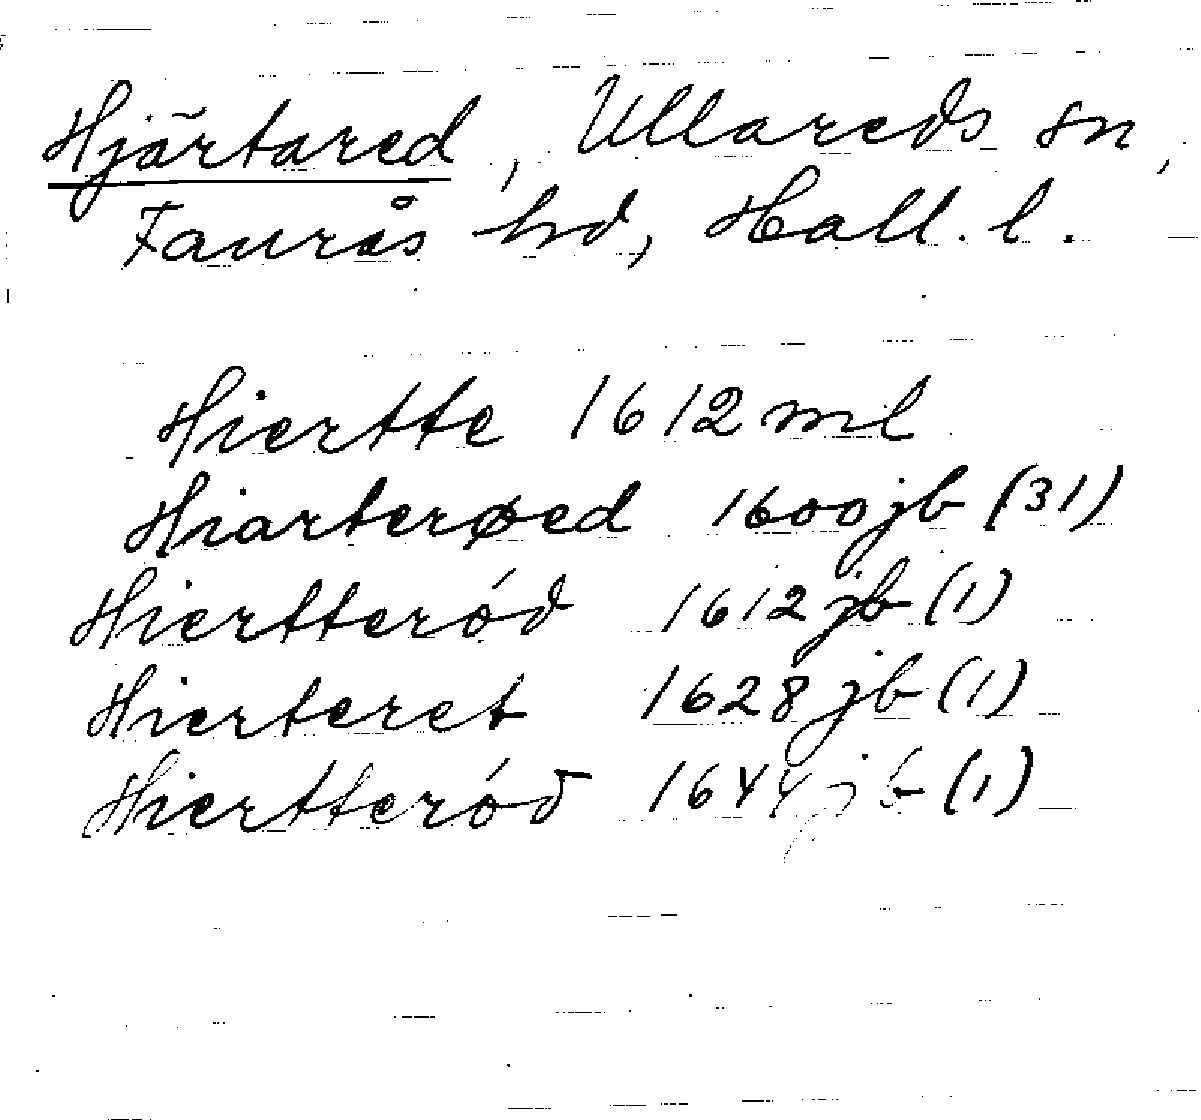 Hjärtared, Ullareds sn,
Faurås hd, Hall. l.
Hiertte 1612 ml
Hiarterøed 1600 jb (31)
Hiertteród 1612 jb (1)
Hierteret 1628 jb (1)
Hiertteród 1644 jb (1)